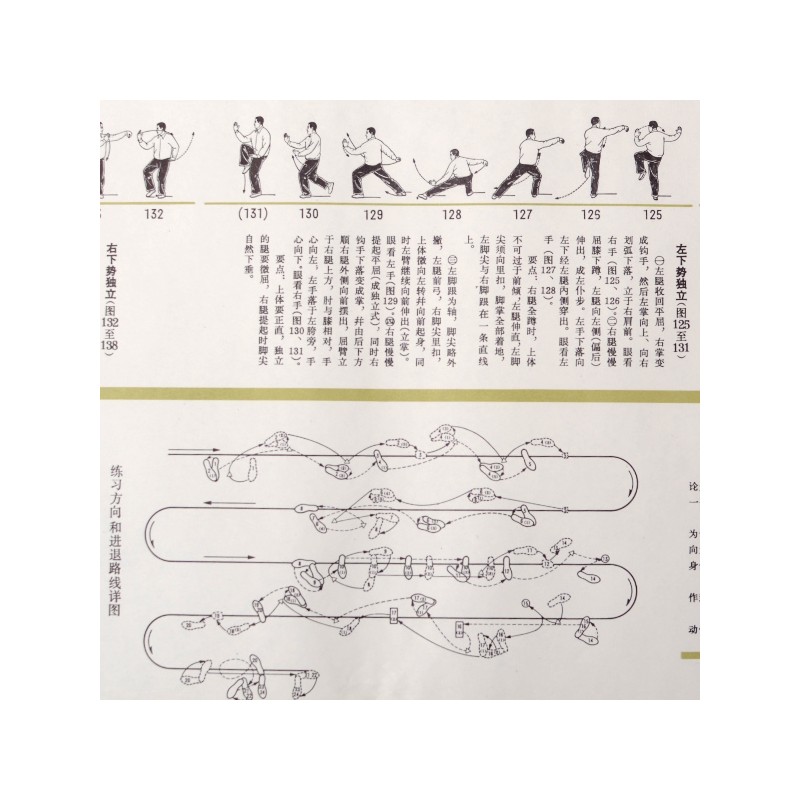 132 (131) 130 129 128 127 126 125
左下势独立(图125至131)
㊀左腿收回平屈，右掌变
成钩手，然后左掌向上、向右
划弧下落，立于右肩前。眼看
右手(图125、126)。㊁右腿慢慢
屈膝下蹲，左腿向左侧(偏后)
伸出，成左仆步。左手下落向
左下经左腿内侧穿出。眼看左
手(图127、128)。
要点：右腿全蹲时，上体
不可过于前倾，左腿伸直，左脚
尖须向里扣，脚掌全部着地，
左脚尖与右脚跟在一条直线
上。
㊂左脚跟为轴，脚尖略外
撇，左腿前弓，右脚尖里扣，
上体微向左转并向前起身，同
时左臂继续向前伸出(立掌)。
眼看左手(图129)。㊃右腿慢慢
提起平屈(成独立式)，同时右
钩手下落变成掌，并由后下方
顺右腿外侧向前摆出，屈臂立
于右腿上方，肘与膝相对，手
心向左，左手落于左胯旁，手
心向下。眼看右手(图130、131)。
要点：上体要正直，独立
的腿要微屈，右腿提起时脚尖
自然下垂。
右下势独立(图132至138)
论一为向身作动
练习方向和进退路线详图